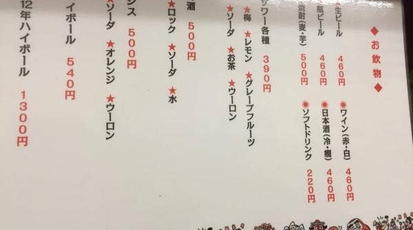 ◆お飲物◆
生ビール 460円
瓶ビール 460円
焼酎(麦・芋) 500円
●ワイン(赤・白) 460円
●日本酒(冷・燗) 460円
●ソフトドリンク 220円
ワー各種 390円
★梅 ★レモン ★グレープフルーツ
★ソーダ ★お茶 ★ウーロン
酒 500円
★ロック ★ソーダ ★水
シス 500円
★ソーダ ★オレンジ ★ウーロン
イボール 540円
12年ハイボール 1300円